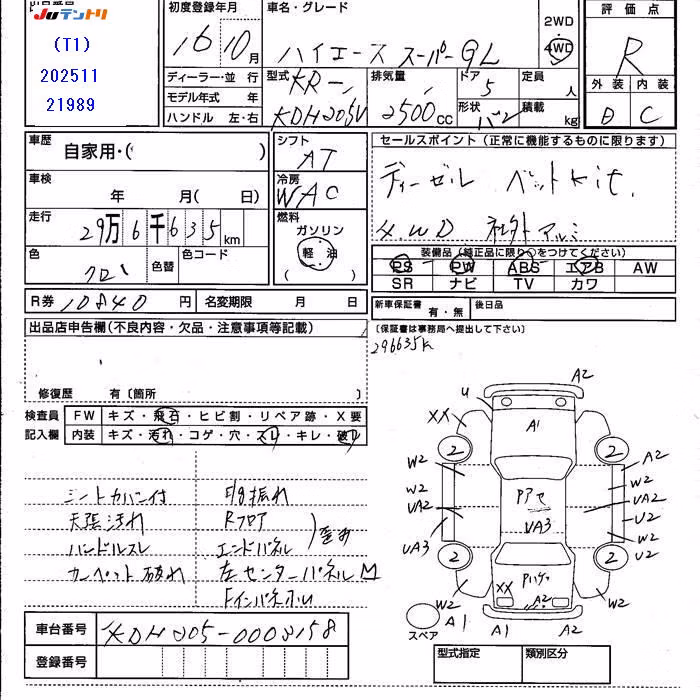 出品番号
JUテントリ
(T1)
202511
21989
初度登録年月
16 10月
車名・グレード
ハイエース スーパーGL
2WD
・
4WD
評価点
R
外装 内装
B C
ディーラー・並行
モデル年式 年
ハンドル 左・右
型式
KR-
KDH205V
排気量
2500cc
ドア
5
形状
バン
定員
人
積載
kg
車歴
自家用・( )
車検
年 月( 日)
走行
29万6千635km
色
クロ
色替
色コード
シフト
AT
冷房
WAC
燃料
ガソリン
軽油
( )
セールスポイント(正常に機能するものに限ります)
ディーゼル ベットkit.
4.WD 社外アルミ
装備品(純正品に限り○をつけてください)
PS PW ABS エアB AW
SR ナビ TV カワ
R券 10840円
名変期限 月 日
新車保証書
有・無
後日品
出品店申告欄(不良内容・欠品・注意事項等記載)
(保証書は事務局へ提出して下さい)
296635K
修復歴 有〔箇所 〕
検査員
記入欄
FW キズ・飛石・ヒビ割・リペア跡・X要
内装 キズ・汚れ・コゲ・穴・スレ・キレ・破レ
シートカバー付
天張汚れ
ハンドルスレ
カーペット破れ
Rフロア
エンドパネル
左センターパネルM
Fインパネホル
車台番号
KDH205-0003158
登録番号
A2
u
XX
A1
2
2
W2
W2
UA2
UA3
アアセ
UA3
A2
W2
UA2
U2
W2
U2
2
2
XX
A2
W2
W2
スペア
A1
A1
A2
型式指定
類別区分